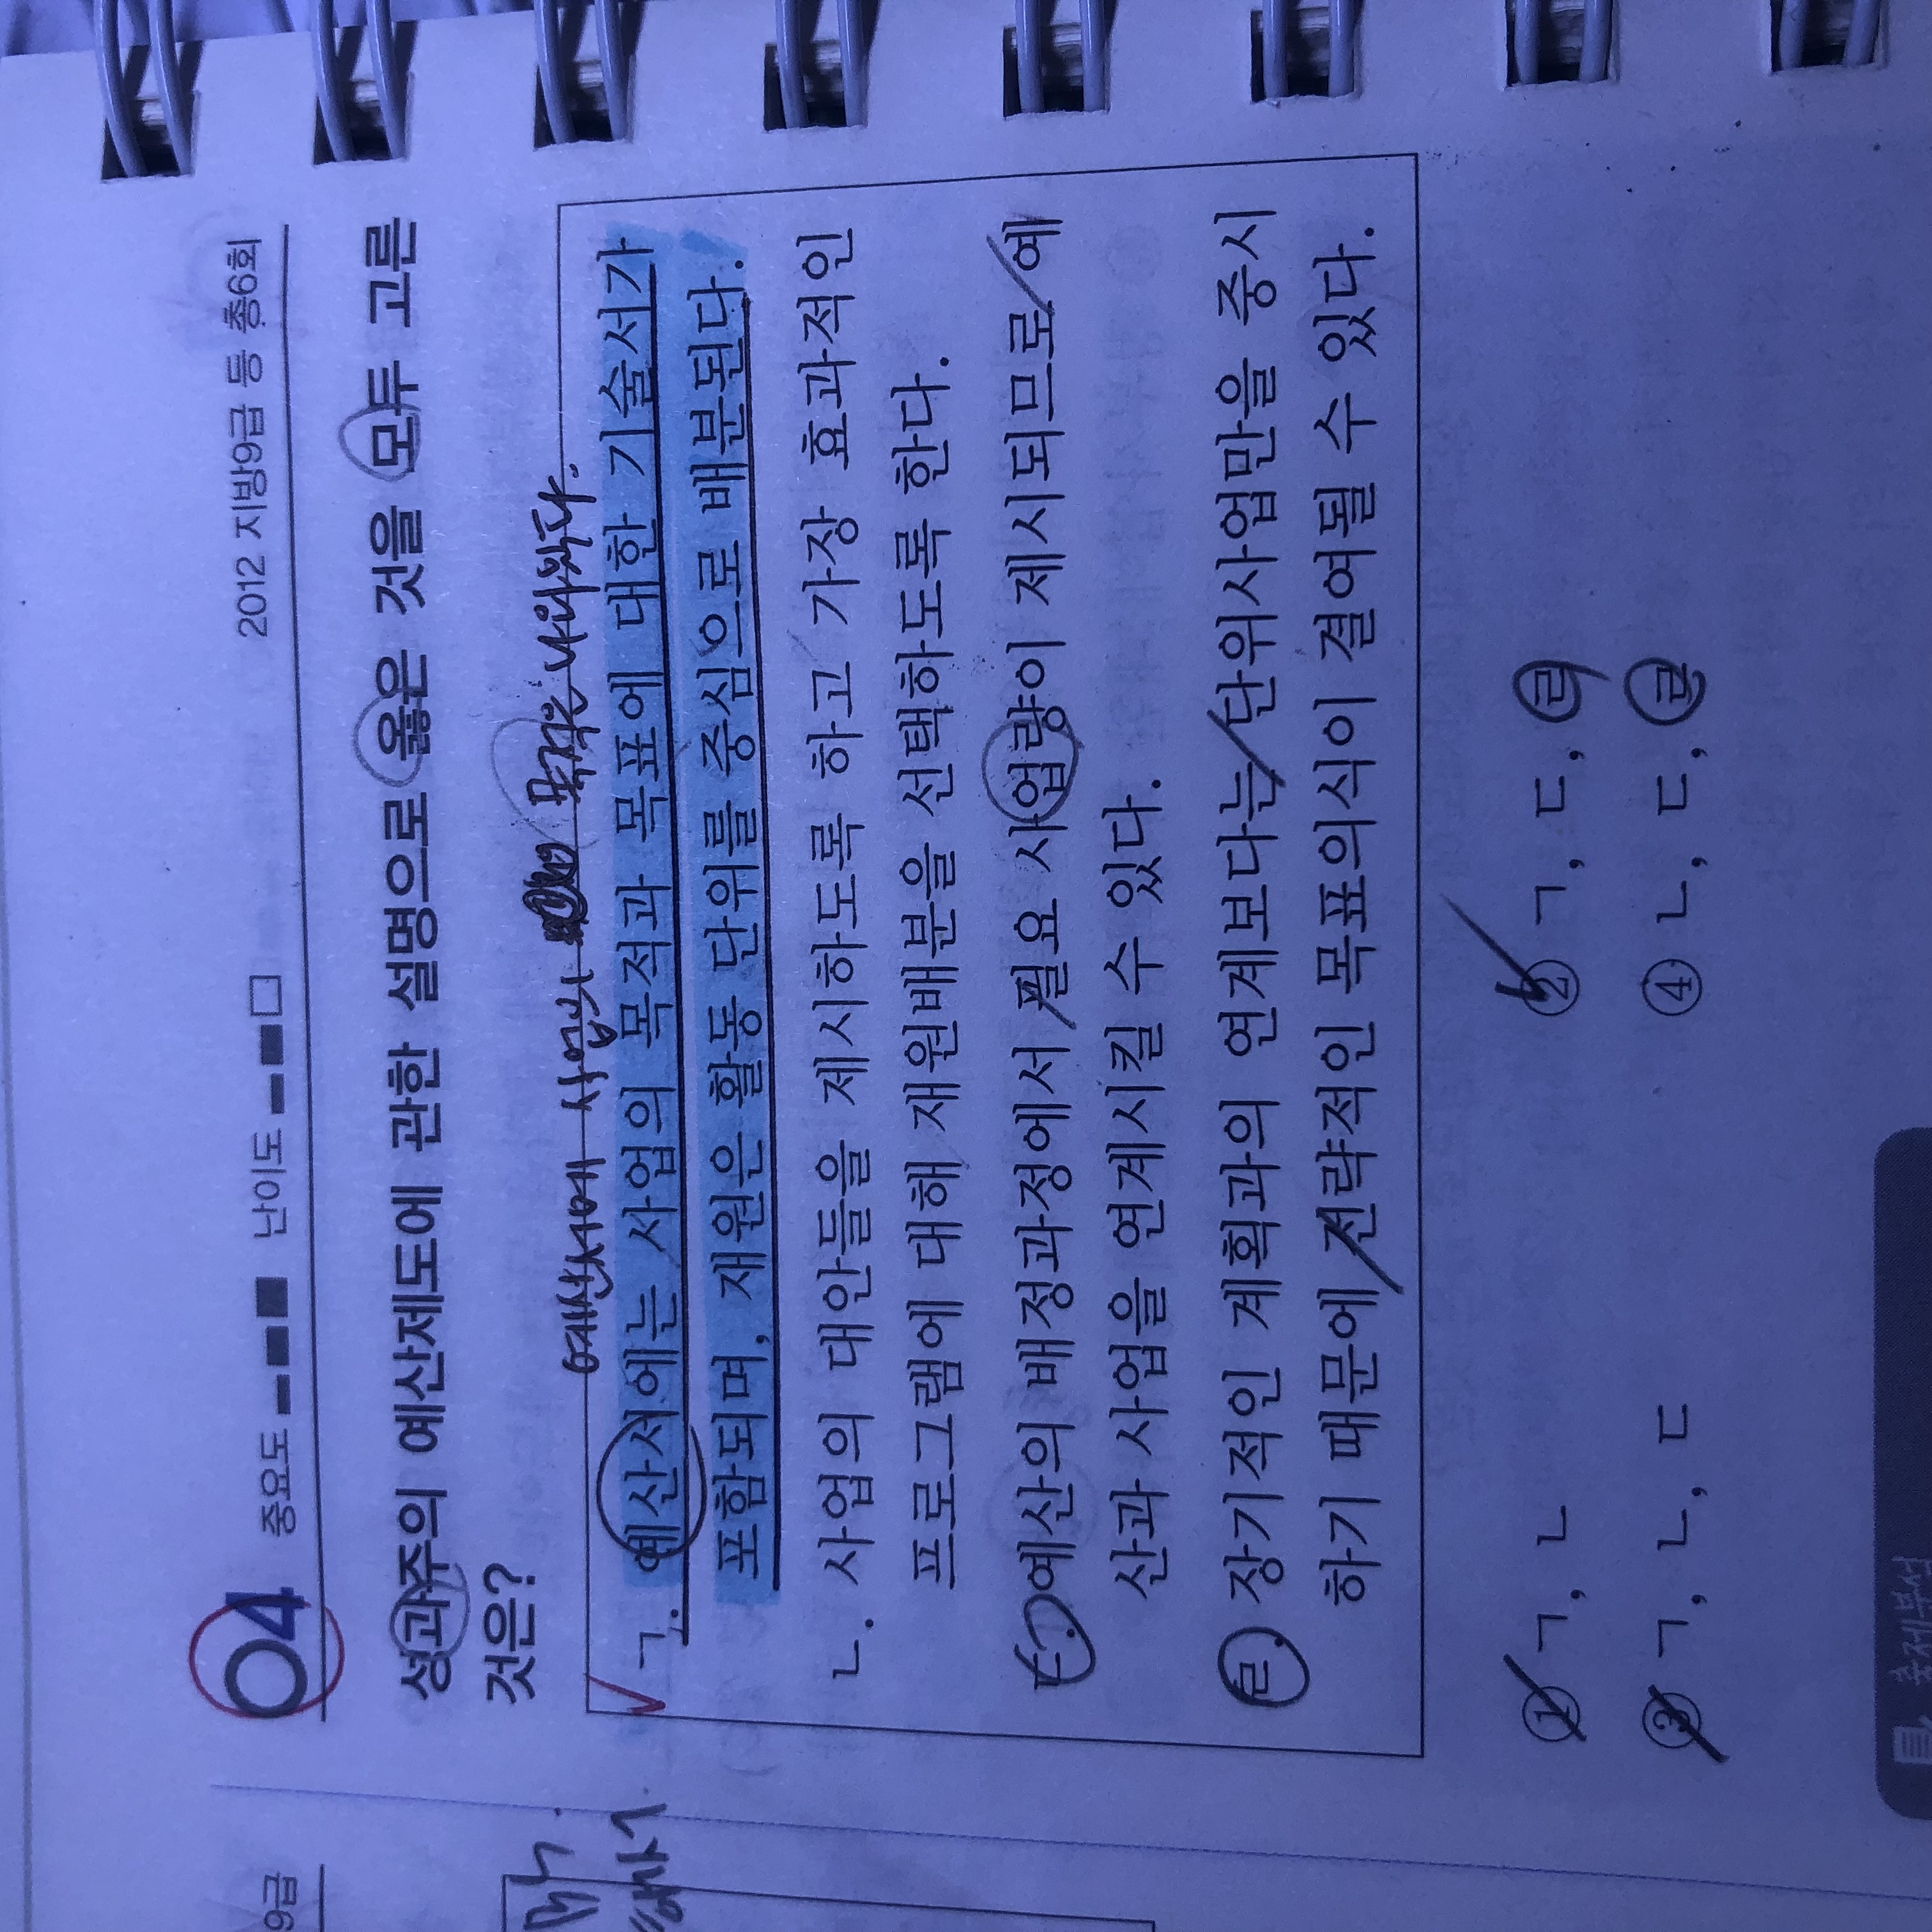 04 중요도 난이도 2012 지방9급 등 총6회
성과주의 예산제도에 관한 설명으로 옳은 것을 모두 고른
것은?
예산서에 사업의 목적은 나와있다.
ㄱ. 예산서에는 사업의 목적과 목표에 대한 기술서가
포함되며, 재원은 활동 단위를 중심으로 배분된다.
ㄴ. 사업의 대안들을 제시하도록 하고 가장 효과적인
프로그램에 대해 재원배분을 선택하도록 한다.
ㄷ. 예산의 배정과정에서 필요 사업량이 제시되므로 예
산과 사업을 연계시킬 수 있다.
ㄹ. 장기적인 계획과의 연계보다는 단위사업만을 중시
하기 때문에 전략적인 목표의식이 결여될 수 있다.
① ㄱ, ㄴ ② ㄱ, ㄷ, ㄹ
③ ㄱ, ㄴ, ㄷ ④ ㄴ, ㄷ, ㄹ
출제분석
9급